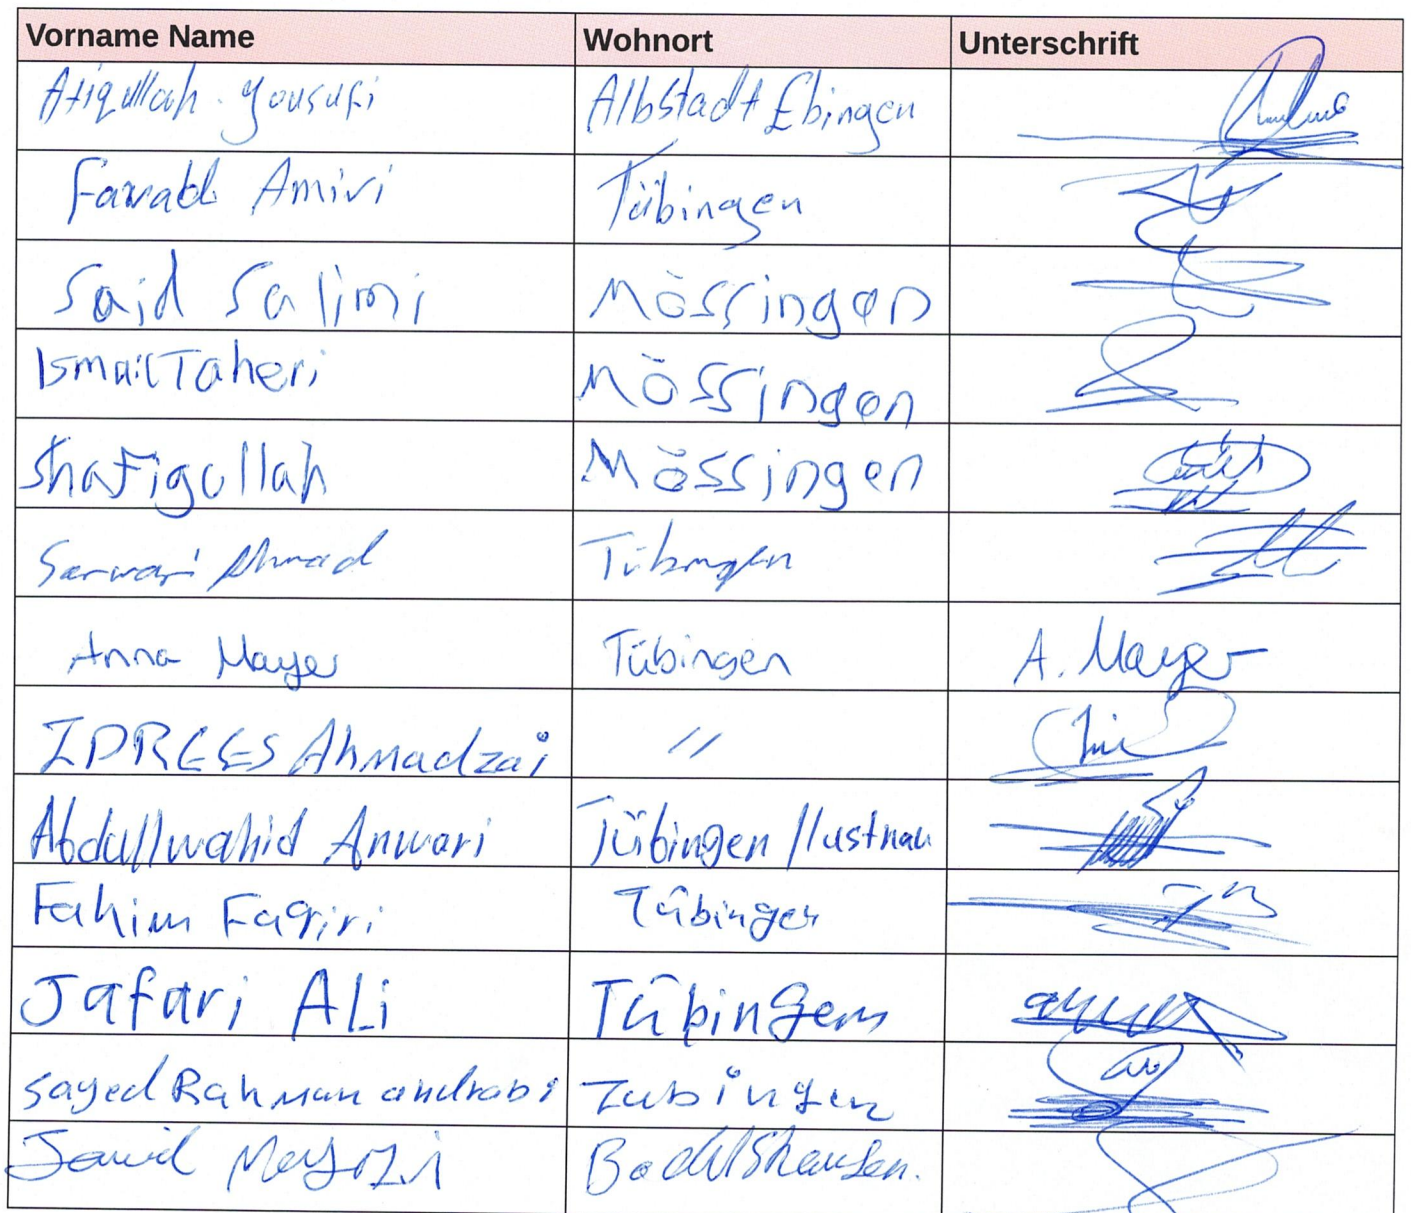 Vorname Name Wohnort Unterschrift
Atiqullah Yousufi Albstadt Ebingen
Farvabb Amiri Tübingen
Said Salimi Mössingen
Ismail Taheri Mössingen
Shafigullah Mössingen
Sarwari Ahmad Tübingen
Anna Mayer Tübingen A. Mayer
IDREES Ahmadzai //
Abdullwahid Anwari Tübingen / lustnau
Fahim Faqiri Tübingen
Jafari ALi Tübingen
Sayed Rahman andrabi Zubingen
Jawid Bodelshausen.